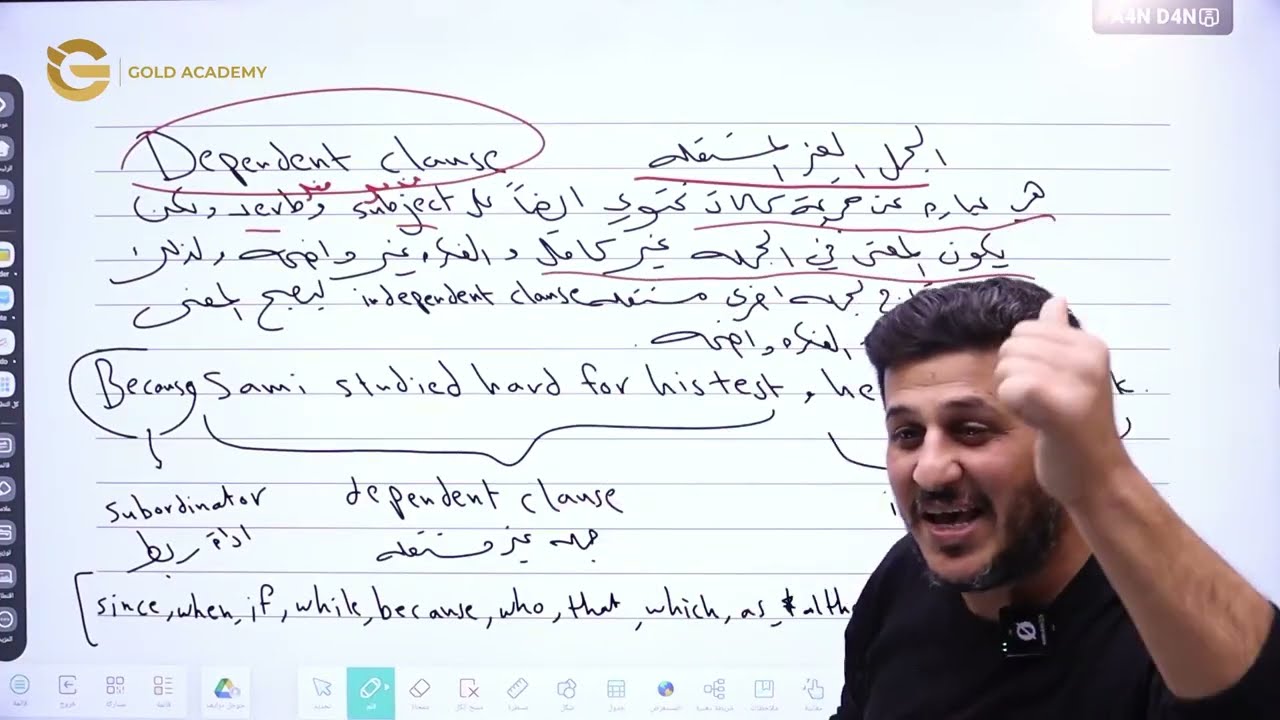 A4N D4N
GOLD ACADEMY
Dependent clause الجمل الغير المستقله
هي عباره عن مجموعة كلمات تحتوي ايضاً على subject و verb ولكن
يكون المعنى في الجمله غير كامل و الفكره غير واضحه ولذلك
لجمله اخرى مستقله independent clause ليصبح المعنى
الفكره واضحه .
Because Sami studied hard for his test , he
subordinator dependent clause
اداة ربط جمله غير مستقله
since, when, if, while, because, who, that, which, as, & altho